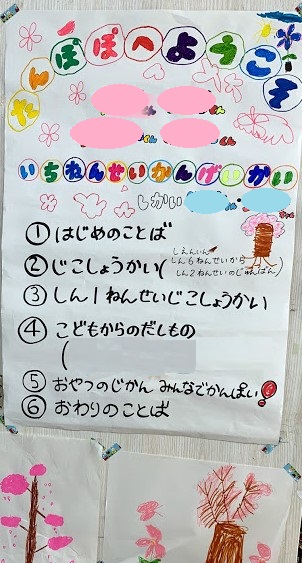 たんぽぽへようこそ
くん
くん
いちねんせいかんげいかい
しかい
① はじめのことば
② じこしょうかい(しえんいん
しん6ねんせいから
しん2ねんせいのじゅんばん)
③ しん1ねんせいじこしょうかい
④ こどもからのだしもの
(
⑤ おやつのじかん みんなでかんぱい!
⑥ おわりのことば